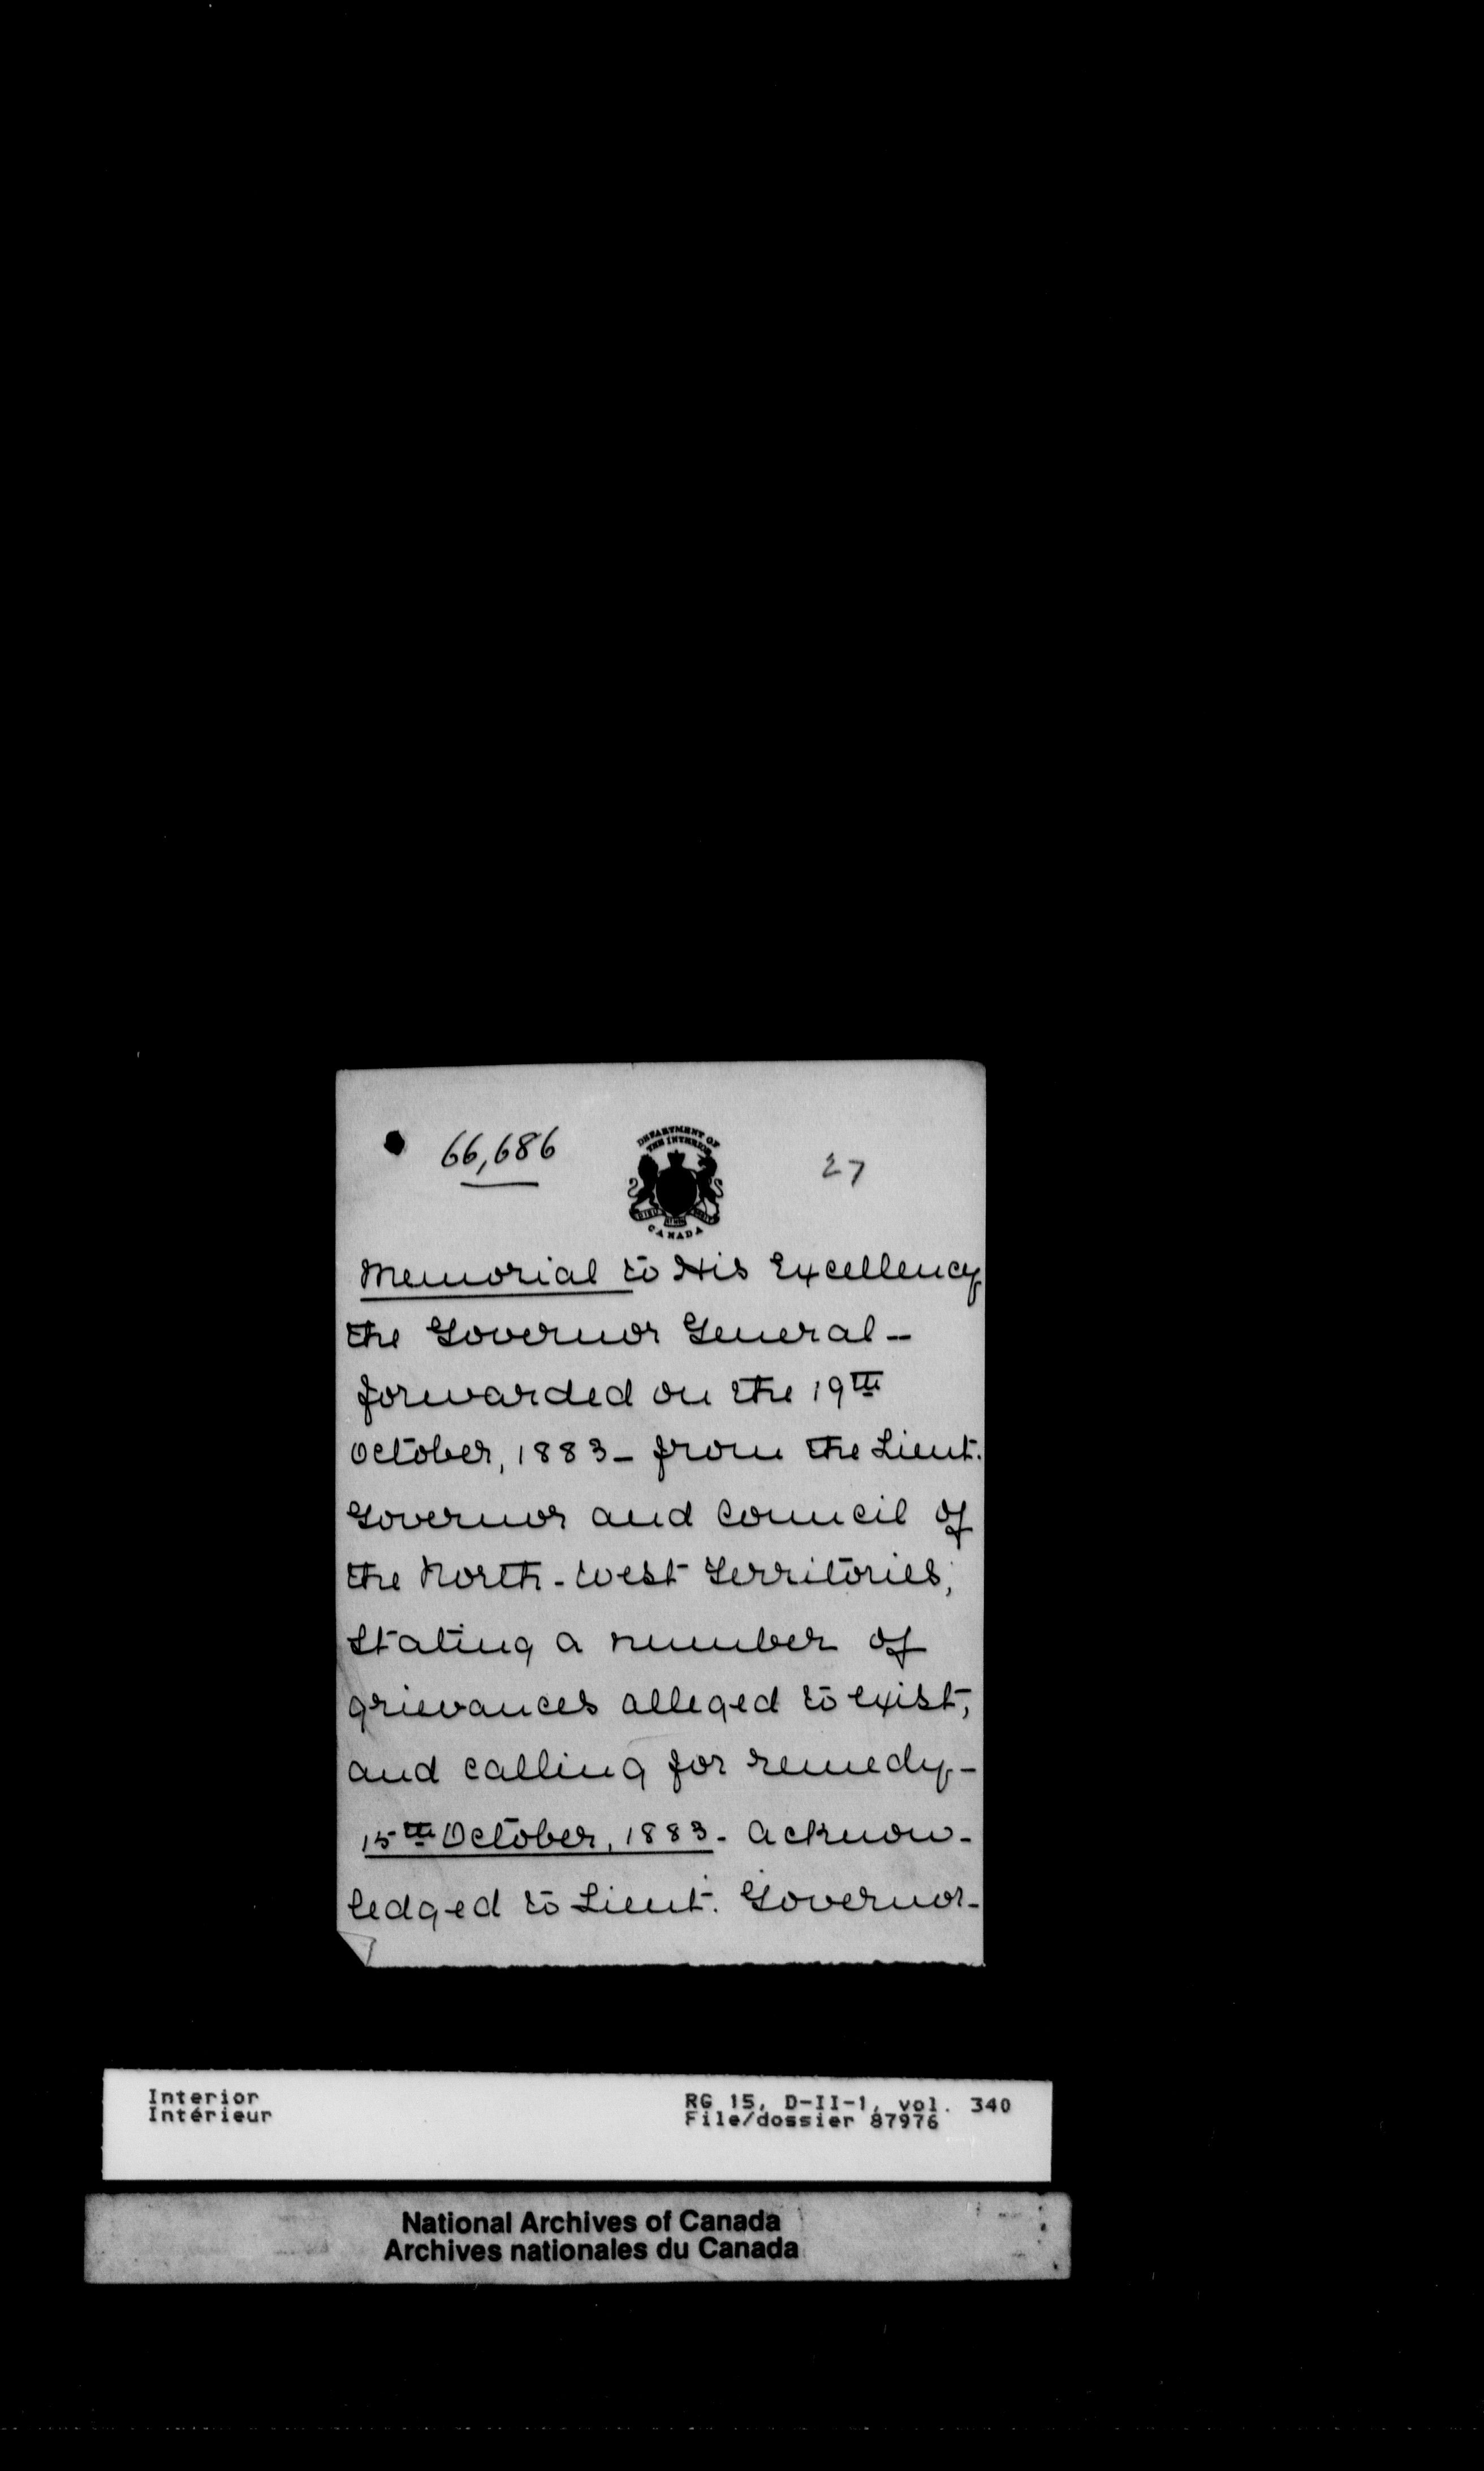 66,686
DEPARTMENT OF
THE INTERIOR
CANADA
27
Memorial to His Excellency
the Governor General --
forwarded on the 19th
October, 1883 - from the Lieut.
Governor and Council of
the North-West Territories;
Stating a number of
grievances alleged to exist,
and calling for remedy -
15th October, 1883 - Acknow-
ledged to Lieut. Governor -
Interior
Intérieur
RG 15, D-II-1, vol. 340
File/dossier 87976
National Archives of Canada
Archives nationales du Canada